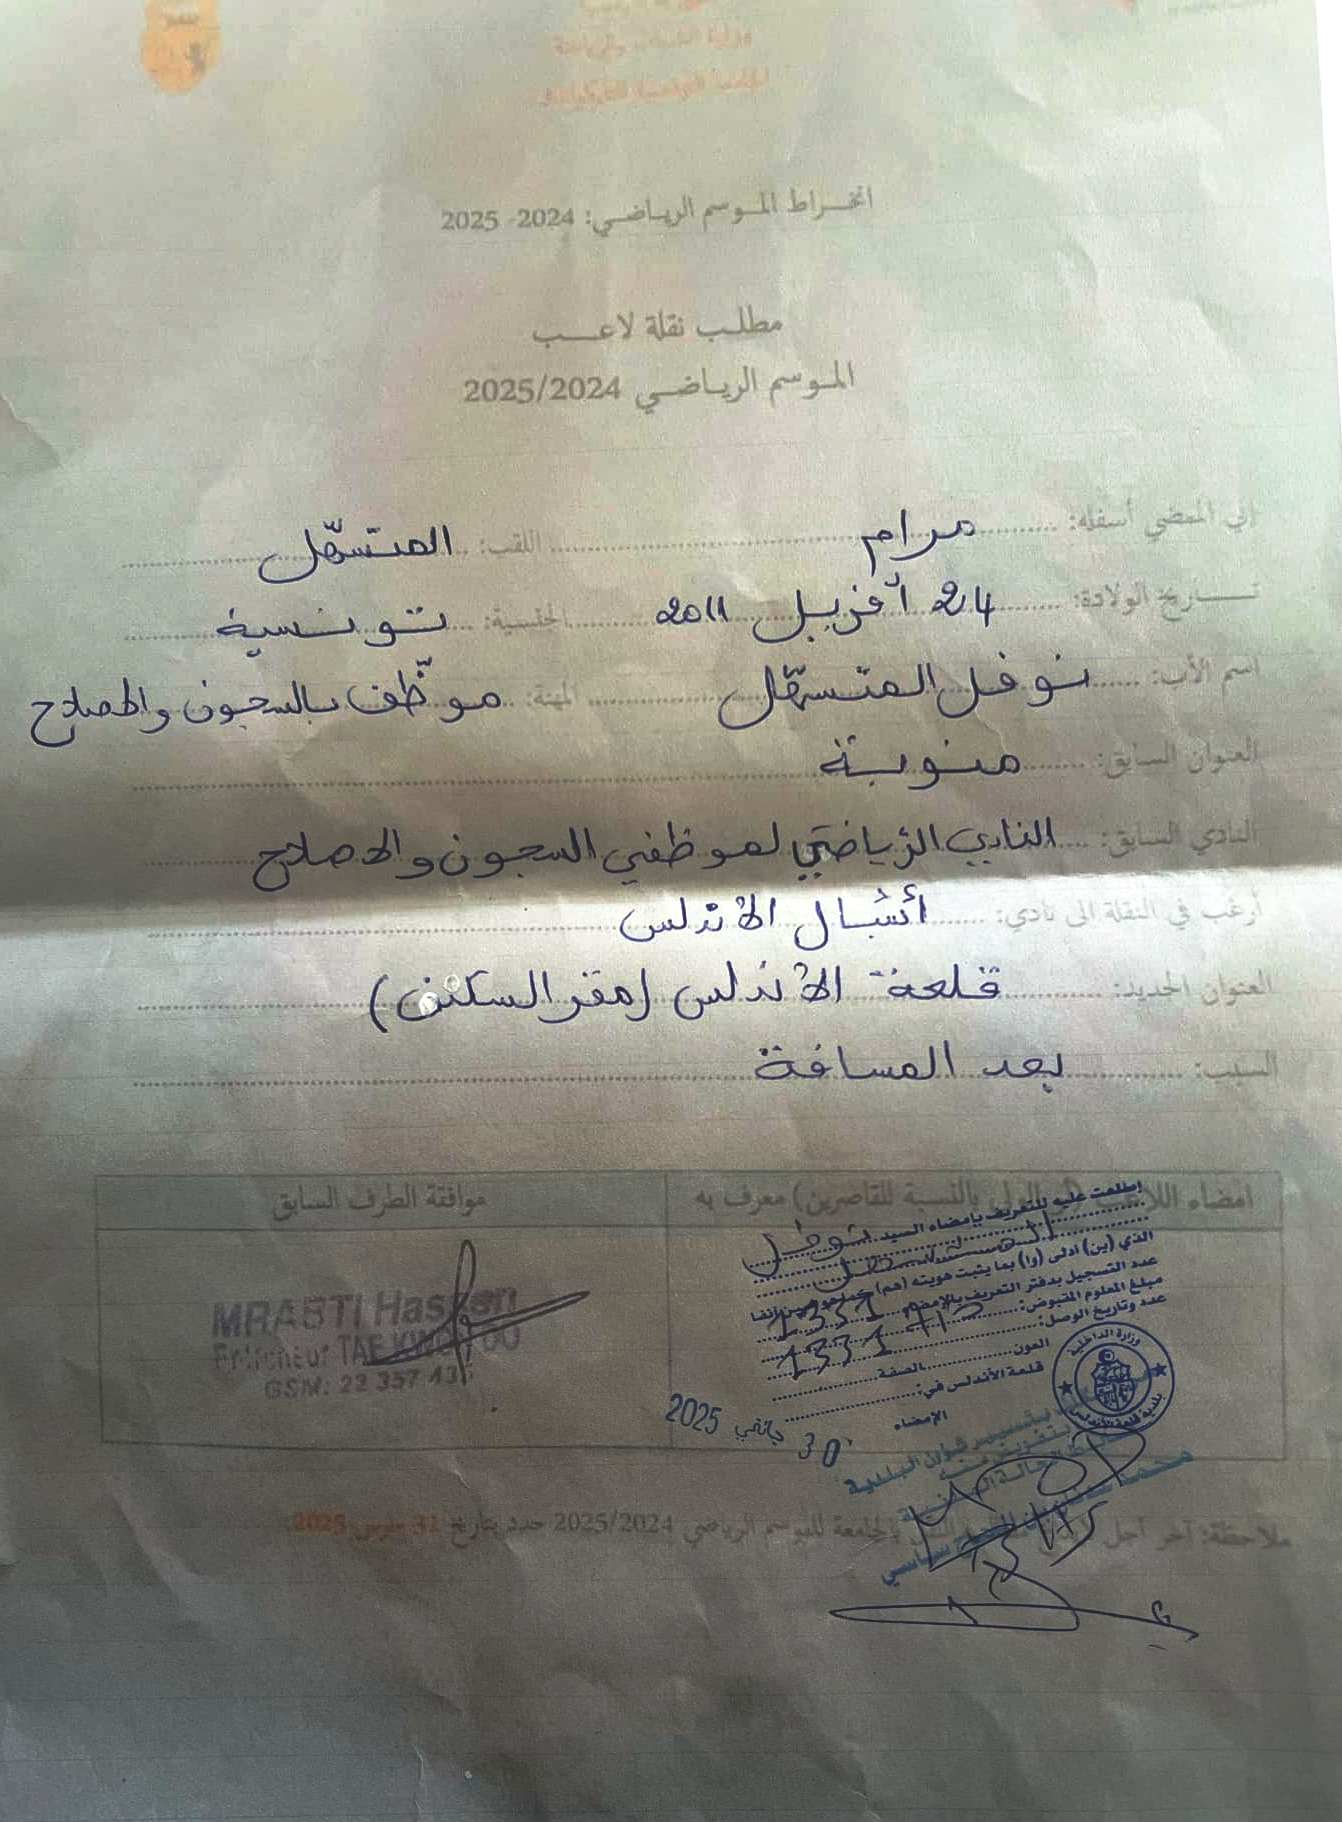 انخراط الموسم الرياضي: 2024- 2025
مطلب نقلة لاعب
الموسم الرياضي 2025/2024
إني الممضي أسفله: مرام اللقب: المتسهّل
تاريخ الولادة: 24 أفريل 2011 الجنسية: تونسية
اسم الأب: نوفل المتسهّل المهنة: موظّف بالسجون والإصلاح
العنوان السابق: منوبة
النادي السابق: النادي الرّياضي لموظفي السجون والإصلاح
أرغب في النقلة الى نادي: أشبال الأندلس
العنوان الجديد: قلعة الأندلس (مقر السكنى)
السبب: بعد المسافة
امضاء اللاعب (أو الولي بالنسبة للقاصرين) معرف به
موافقة الطرف السابق
إطلعت عليه للتعريف بإمضاء السيد نوفل
المتسهل
الذي (ين) ادلى (وا) بما يثبت هويته (هم)
عدد التسجيل بدفتر التعريف بالإمضاء 1331
مبلغ المعلوم المقبوض:
عدد وتاريخ الوصل: 1331
العون الصفة
قلعة الأندلس في:
30 جانفي 2025
الإمضاء
وزارة الداخلية
بلدية قلعة الأندلس
MRABTI Hassen
Entraineur TAEKWONDO
GSM: 22 357
بتسيير شؤون البلدية
ملاحظة: آخر أجل الجامعة للموسم الرياضي 2025/2024 حدد بتاريخ 31 مارس 2025.